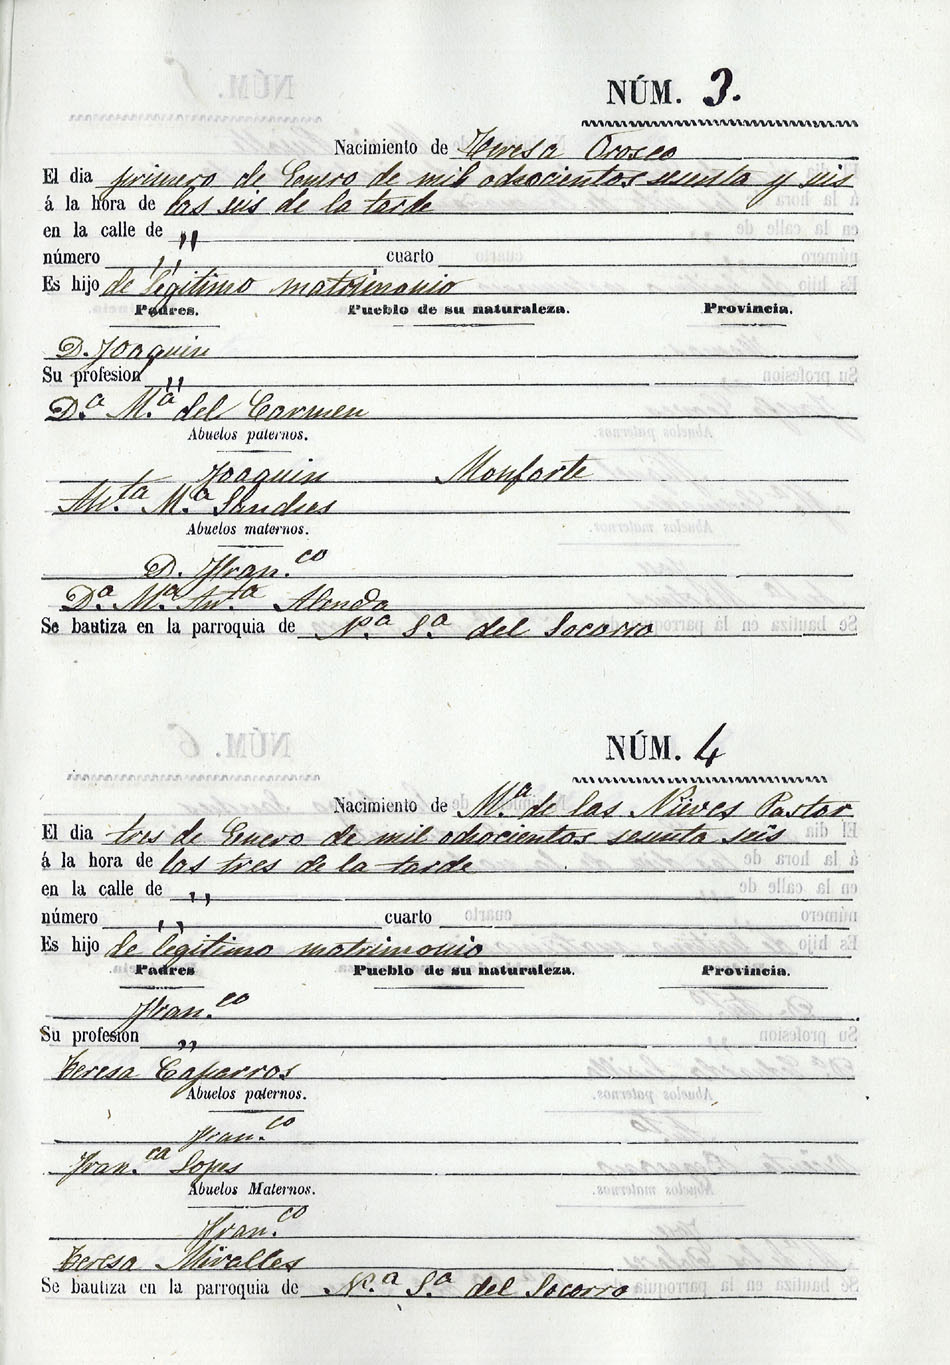 NÚM. 3.
Nacimiento de Teresa Orosco
El dia primero de Enero de mil odhocientos sesenta y seis
á la hora de las seis de la tarde
en la calle de "
número " cuarto
Es hijo de legitimo matrimonio
Padres. Pueblo de su naturaleza. Provincia.
D. Joaquin
Su profesion "
D.ª M.ª del Carmen
Abuelos paternos.
Joaquin Monforte
Ant.ta M.ª Sandres
Abuelos maternos.
D. Fran.co
D.ª M.ª Ant.ta Alenda
Se bautiza en la parroquia de N.ª S.ª del Socorro
NÚM. 4
Nacimiento de M.ª de las Nieves Pastor
El dia tres de Enero de mil odhocientos sesenta seis
á la hora de las tres de la tarde
en la calle de "
número " cuarto
Es hijo de legitimo matrimonio
Padres Pueblo de su naturaleza. Provincia.
Fran.co
Su profesion "
Teresa Caparros
Abuelos paternos.
Fran.co
Fran.ca Lopes
Abuelos Maternos.
Fran.co
Teresa Miralles
Se bautiza en la parroquia de N.ª S.ª del Socorro